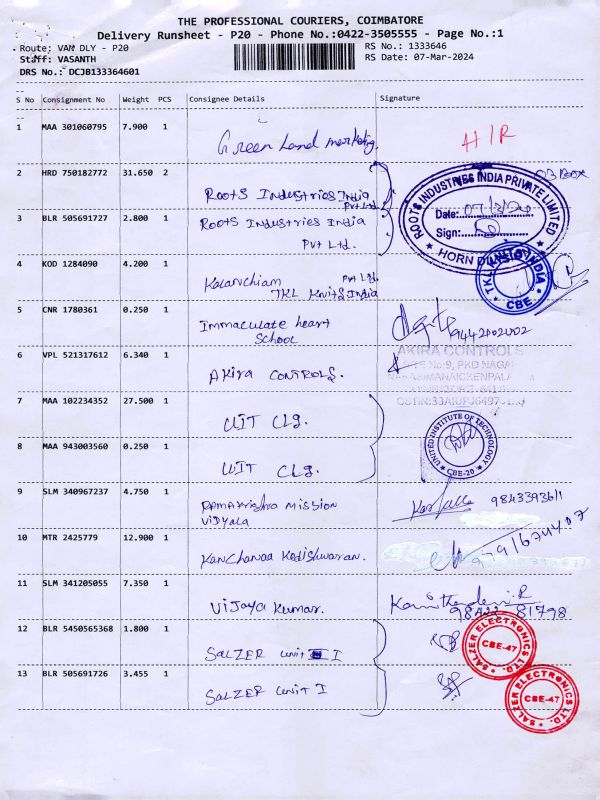 THE PROFESSIONAL COURIERS, COIMBATORE
Delivery Runsheet - P20 - Phone No.:0422-3505555 - Page No.:1
Route: VAN DLY - P20
RS No.: 1333646
Staff: VASANTH
RS Date: 07-Mar-2024
DRS No.: DCJB133364601
S No Consignment No Weight PCS Consignee Details Signature
1 MAA 301060795 7.900 1 Green Land marketing. H/R
2 HRD 750182772 31.650 2 Roots Industries India Pvt Ltd. 03 Box
3 BLR 505691727 2.800 1 Roots Industries India
Pvt Ltd.
ROOTS INDUSTRIES INDIA PRIVATE LIMITED
Date:
Sign:
HORN DIVISION
4 KOD 1284090 4.200 1 Kalanchiam Pvt Ltd.
TKL Knits India
TKL INDIA
CBE
5 CNR 1780361 0.250 1 Immaculate heart
School
6 VPL 521317612 6.340 1 Akira CONTROLS.
AKIRA CONTROLS
7 MAA 102234352 27.500 1 UIT Clg.
8 MAA 943003560 0.250 1 UIT Clg.
UNITED INSTITUTE OF TECHNOLOGY
CBE-20
9 SLM 340967237 4.750 1 Ramakrishna Mission
Vidyala
10 MTR 2425779 12.900 1 Kanchanaa Kodishwaran. 9791674407
11 SLM 341205055 7.350 1 Vijaya Kumar.
98422 81798
12 BLR 5450565368 1.800 1 SALZER unit I
SALZER ELECTRONICS LTD.
CBE-47
13 BLR 505691726 3.455 1 SALZER unit I
SALZER ELECTRONICS LTD.
CBE-47